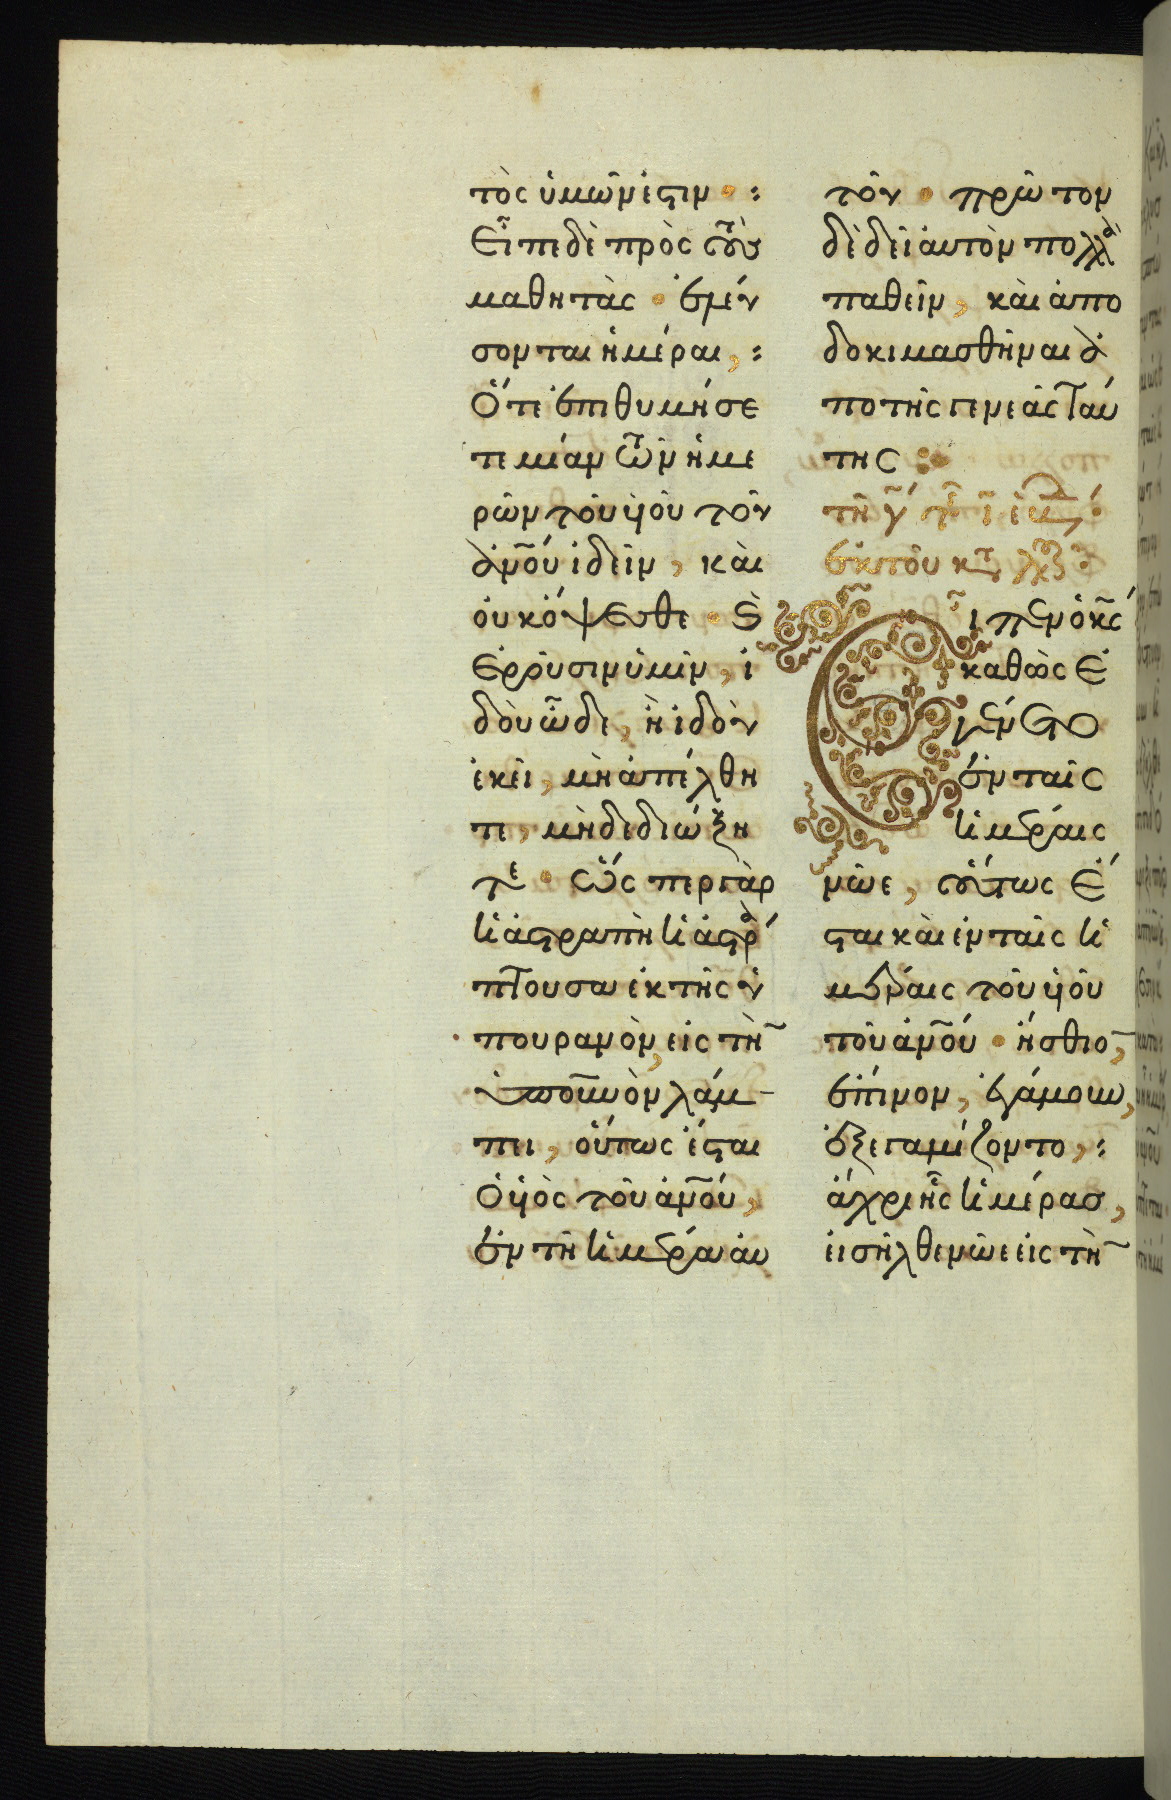 τὸς ὑμῶν ἐστιν
Εἶπε δὲ πρὸς τοὺς
μαθητὰς · ἐλεύ
σονται ἡμέραι,
Ὅτε ἐπιθυμήσε
τε μίαν τῶν ἡμε
ρῶν τοῦ υἱοῦ τοῦ
ἀνου ἰδεῖν, καὶ
οὐκ ὄψεσθε · καὶ
ἐροῦσιν ὑμῖν, ἰ
δοὺ ὧδε, ἢ ἰδοὺ
ἐκεῖ, μὴ ἀπέλθη
τε, μὴδὲ διώξη
τε · Ὥσπερ γὰρ
ἡ ἀστραπὴ ἡ ἀστρά
πτουσα ἐκ τῆς ὑ
π οὐρανὸν, εἰς τὴν
ὑπ οὐνὸν λάμ
πει, οὕτως ἔσται
ὁ υἱὸς τοῦ ἀνου,
ἐν τῇ ἡμέρᾳ αὐ
τοῦ · πρῶτον
δὲ δεῖ αὐτὸν πολλὰ
παθεῖν, καὶ ἀπο
δοκιμασθῆναι ἀ
πο τῆς γενεᾶς ταύ
της
τῇ γ τῆς ι ἑβδ
ἐκ τοῦ κατὰ λκ
Εἶπεν ὁ κς
καθὼς ἐ
γένετο
ἐν ταῖς
ἡμέραις
νῶε, οὕτως ἔ
σται καὶ ἐν ταῖς ἡ
μέραις τοῦ υἱοῦ
τοῦ ἀνου · ἤσθιον,
ἔπινον, ἐγάμουν,
ἐξεγαμίζοντο,
ἄχρι ἧς ἡμέρας,
εἰσῆλθε νῶε εἰς τὴν